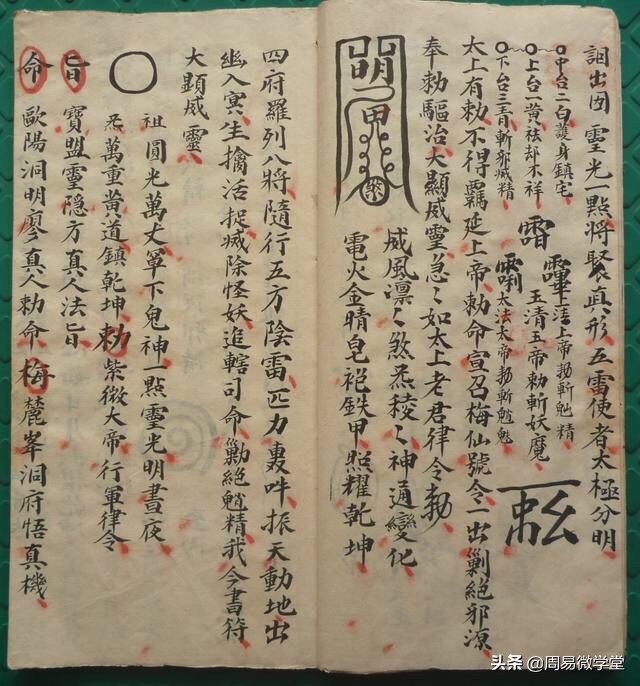 詛出因 靈光一點將聚真形五雷使者太極分明
中台二白護身鎮宅
上台一黃祛却不祥
下台三青斬邪滅精
上清上帝勅斬魁精
玉清玉帝勅斬妖魔
太法太帝勅斬魈魁
太上有勅不得羈延上帝勅命宣召梅仙號令一出剿絕邪源
奉勅驅治大顯威靈急〻如太上老君律令勅
威風凛〻煞炁稜〻神通變化
電火金睛皂袍鉄甲照耀乾坤
四府羅列八將隨行五方陰雷匹力轟吽振天動地出
幽入冥生擒活捉滅除怪妖追轄司命剿絕魈精我今書符
大顯威靈
祖圓光萬丈罩下鬼神一點靈光明晝夜
炁萬重黃道鎮乾坤勅紫微大帝行軍律令
旨 寶盟靈隐方真人法旨
命 歐陽洞明廖真人勅命梅麓峯洞府悟真機
头条 @周易微学堂